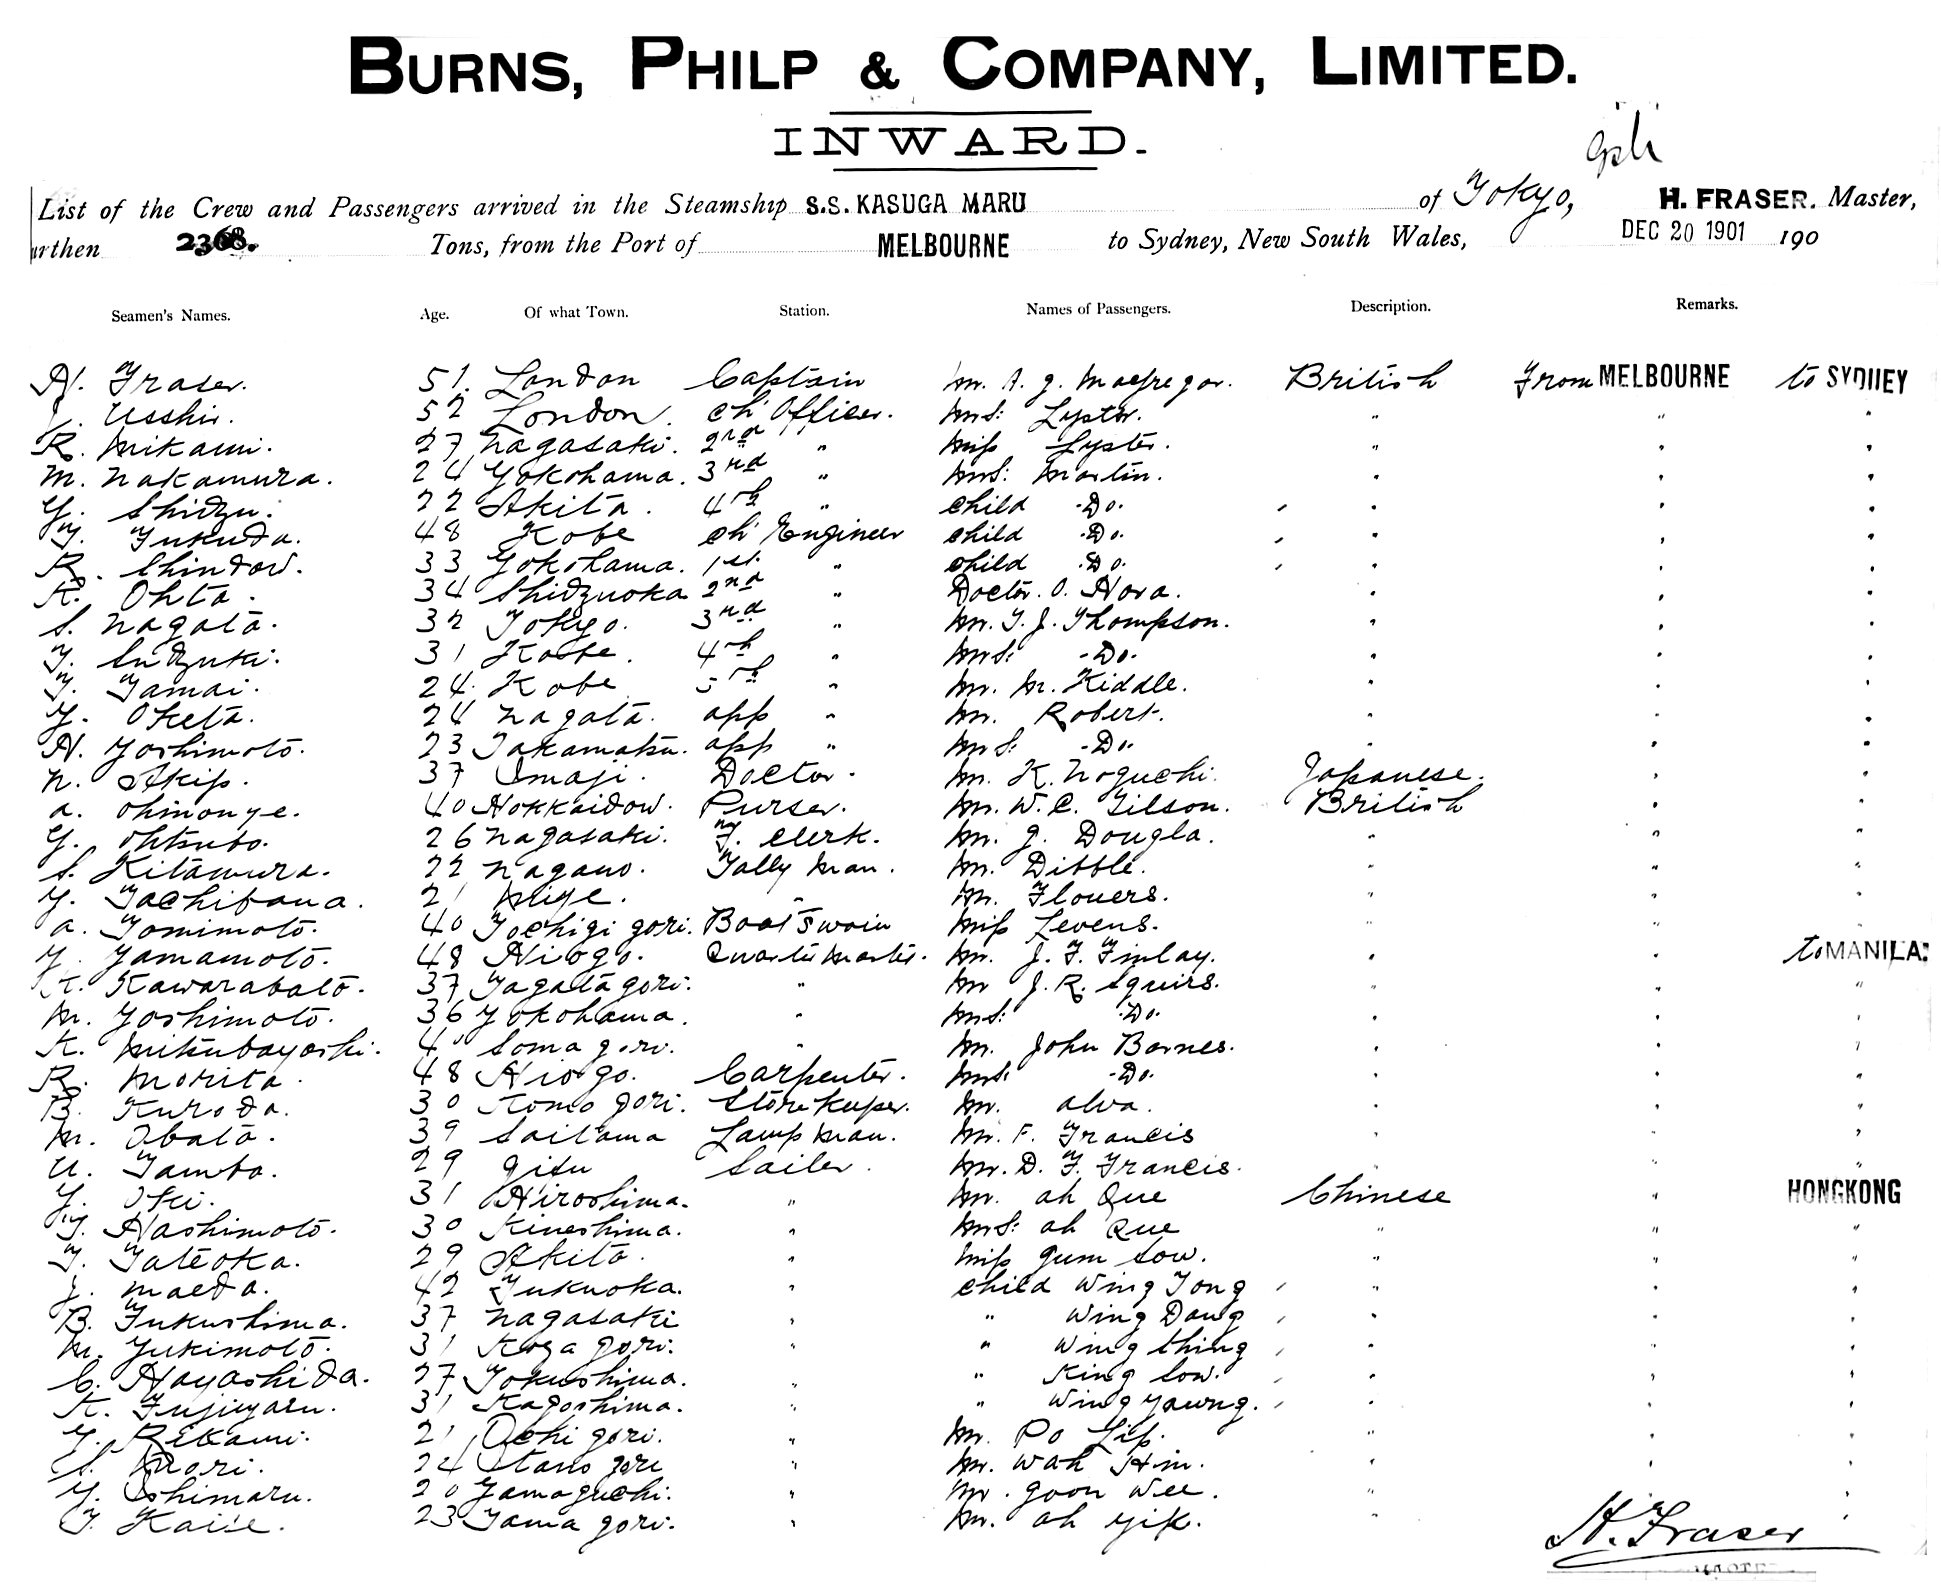 BURNS, PHILP & COMPANY, LIMITED.
INWARD.
List of the Crew and Passengers arrived in the Steamship S.S. KASUGA MARU of Tokyo, H. FRASER. Master,
urthen 2368. Tons, from the Port of MELBOURNE to Sydney, New South Wales, DEC 20 1901 190
Seamen's Names. Age. Of what Town. Station. Names of Passengers. Description. Remarks.
H. Fraser. 51. London Captain Mr. A. J. Macgregor. British From MELBOURNE to SYDNEY
Usshir. 52 London. Ch' Officer. Mrs: Lyster. " " "
R. Mikami. 27 Nagasaki. 2nd " Miss Lyster. " " "
M. Nakamura. 24 Yokohama. 3rd " Mrs: Martin. " " "
Y. Shidzu. 22 Akita. 4th " Child -Do- " " "
Y. Fukuda. 48 Kobe Ch' Engineer Child -Do- " " "
R. Shindow. 33 Yokohama. 1st " Child -Do- " " "
K. Ohta. 34 Shidzuoka 2nd " Doctor. O. Hora. " " "
S. Nagata. 32 Tokyo. 3rd " Mr. T. J. Thompson. " " "
T. Sudzuki. 31 Kobe. 4th " Mrs: -Do- " " "
T. Tamai. 24. Kobe 5th " Mr. M. Kiddle. " " "
Y. Oketa. 24 Nagata. App " Mr. Robert. " " "
H. Yoshimoto. 23 Takamatsu. App " Mrs: -Do- " " "
N. 37 Doctor. Mr. K. Noguchi. Japanese. " "
A. Ohinouye. 40 Hokkaidow. Purser. Mr. W. C. Gilson. British " "
Y. Ohtsubo. 26 Nagasaki. F. Clerk. Mr. J. Dougla. " " "
S. Kitamura. 22 Nagano. Tally Man. Mr. Dibble. " " "
Y. Tachibana. 21 Miye. " Mr. Flowers. " " "
A. Tomimoto. 40 Tochigi gori. Boatswain Miss Levens. " "
Y. Yamamoto. 48 Hiogo. Quartermaster. Mr. J. F. Finlay. " " to MANILA:
K. Kawarabata. 37 Yagata gori. " Mr J. R. Squirs. " " "
M. Yoshimoto. 36 Yokohama. " Mrs: -Do- " " "
K. Mitsubayashi. 4 Soma gori. " Mr. John Barnes. " " "
R. Morita. 48 Hiogo. Carpenter. Mrs: -Do- " " "
B. Kuroda. 30 Kono gori. Storekeeper. Mr. Alva. " " "
M. Obata. 39 Saitama Lamp Man. Mr. F. Francis " " "
U. Tamba. 29 Gifu Sailer. Mr. D. F. Francis. " " "
Y. Oki. 31 Hiroshima. " Mr. Ah Que Chinese " HONGKONG
Y. Hashimoto. 30 Kineshima. " Mrs: Ah Que " " "
T. Tateoka. 29 Akita. " Miss Gum Sow. " " "
J. Maeda. 42 Fukuoka. " Child Wing Tong " " "
B. Fukushima. 37 Nagasaki " " Wing Dang " " "
M. Yukimoto. 31 Koga gori. " " Wing Shing " " "
C. Hayashida. 27 Tokushima. " " King Sow. " " "
K. Fujiyasu. 31 Kagoshima. " " Wing Yawng. " " "
Y. Rekami. 21 Ochi gori. " Mr. Po Lip. " " "
S. Mori. 24 Otano gori " Mr. Wah Him. " " "
Y. Oshimaru. 20 Yamaguchi. " Mr. Goon Wee. " "
T. Kaise. 23 Yama gori. " Mr. Ah Yik. " "
H. Fraser